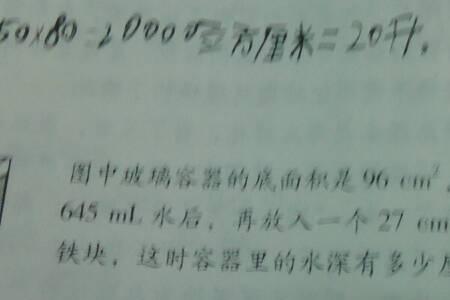 50×80=20000立方厘米=20升.
图中玻璃容器的底面积是96 cm²
645 mL 水后，再放入一个27 cm
铁块，这时容器里的水深有多少